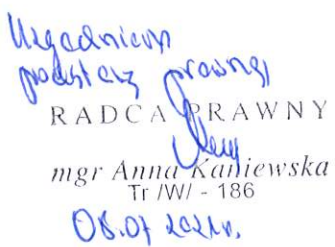 Uzgadniam
podstawę prawną
RADCA PRAWNY
mgr Anna Kaniewska
Tr /W/ - 186
08.07 2021r.